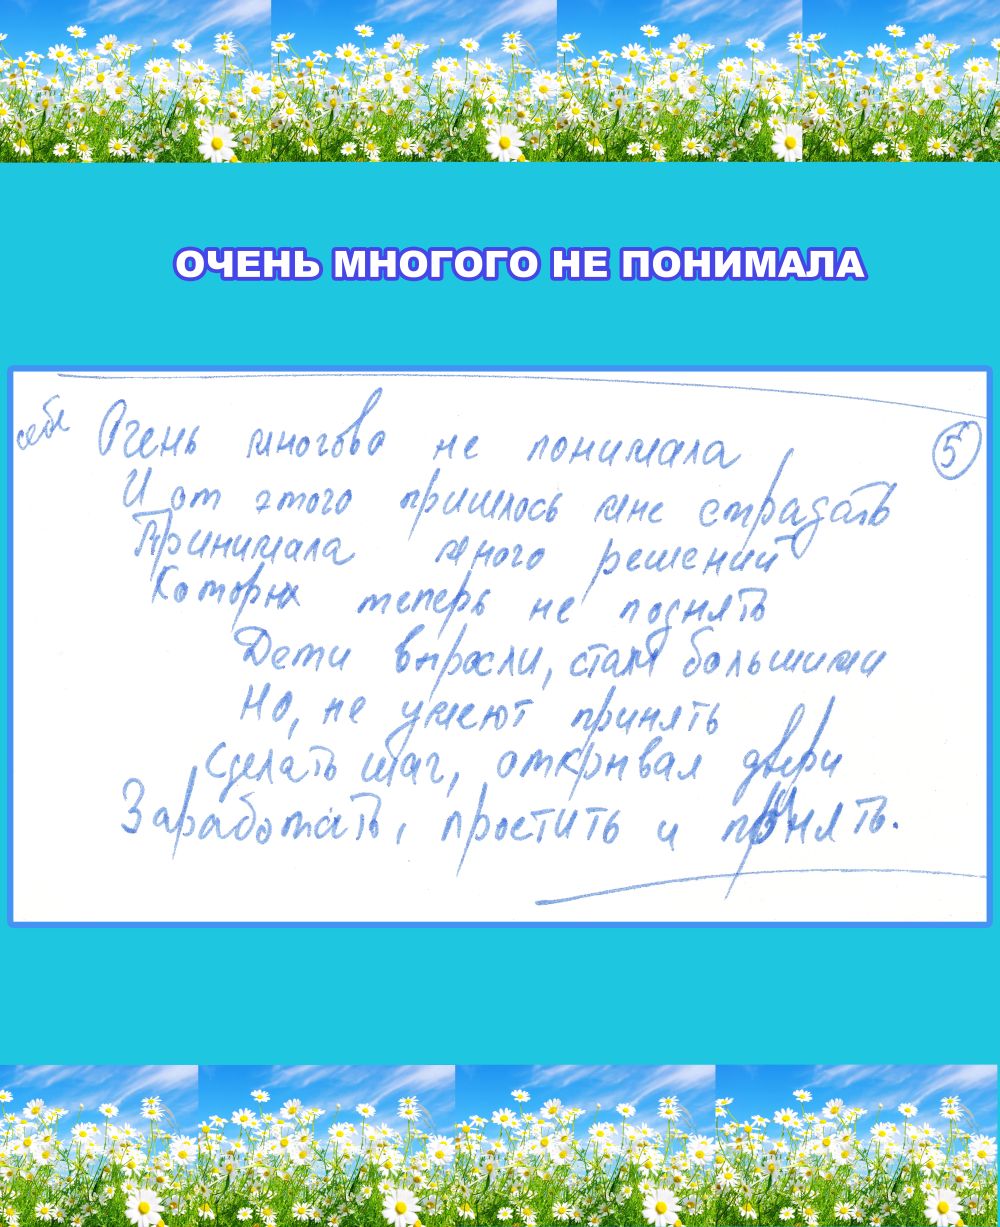 ОЧЕНЬ МНОГОГО НЕ ПОНИМАЛА
себе
5
Очень многово не понимала
И от этого пришлось мне страдать
Принимала много решений
Которых теперь не поднять
Дети выросли, стали большими
Но, не умеют принять
Сделать шаг, открывая двери
Заработать, простить и принять.